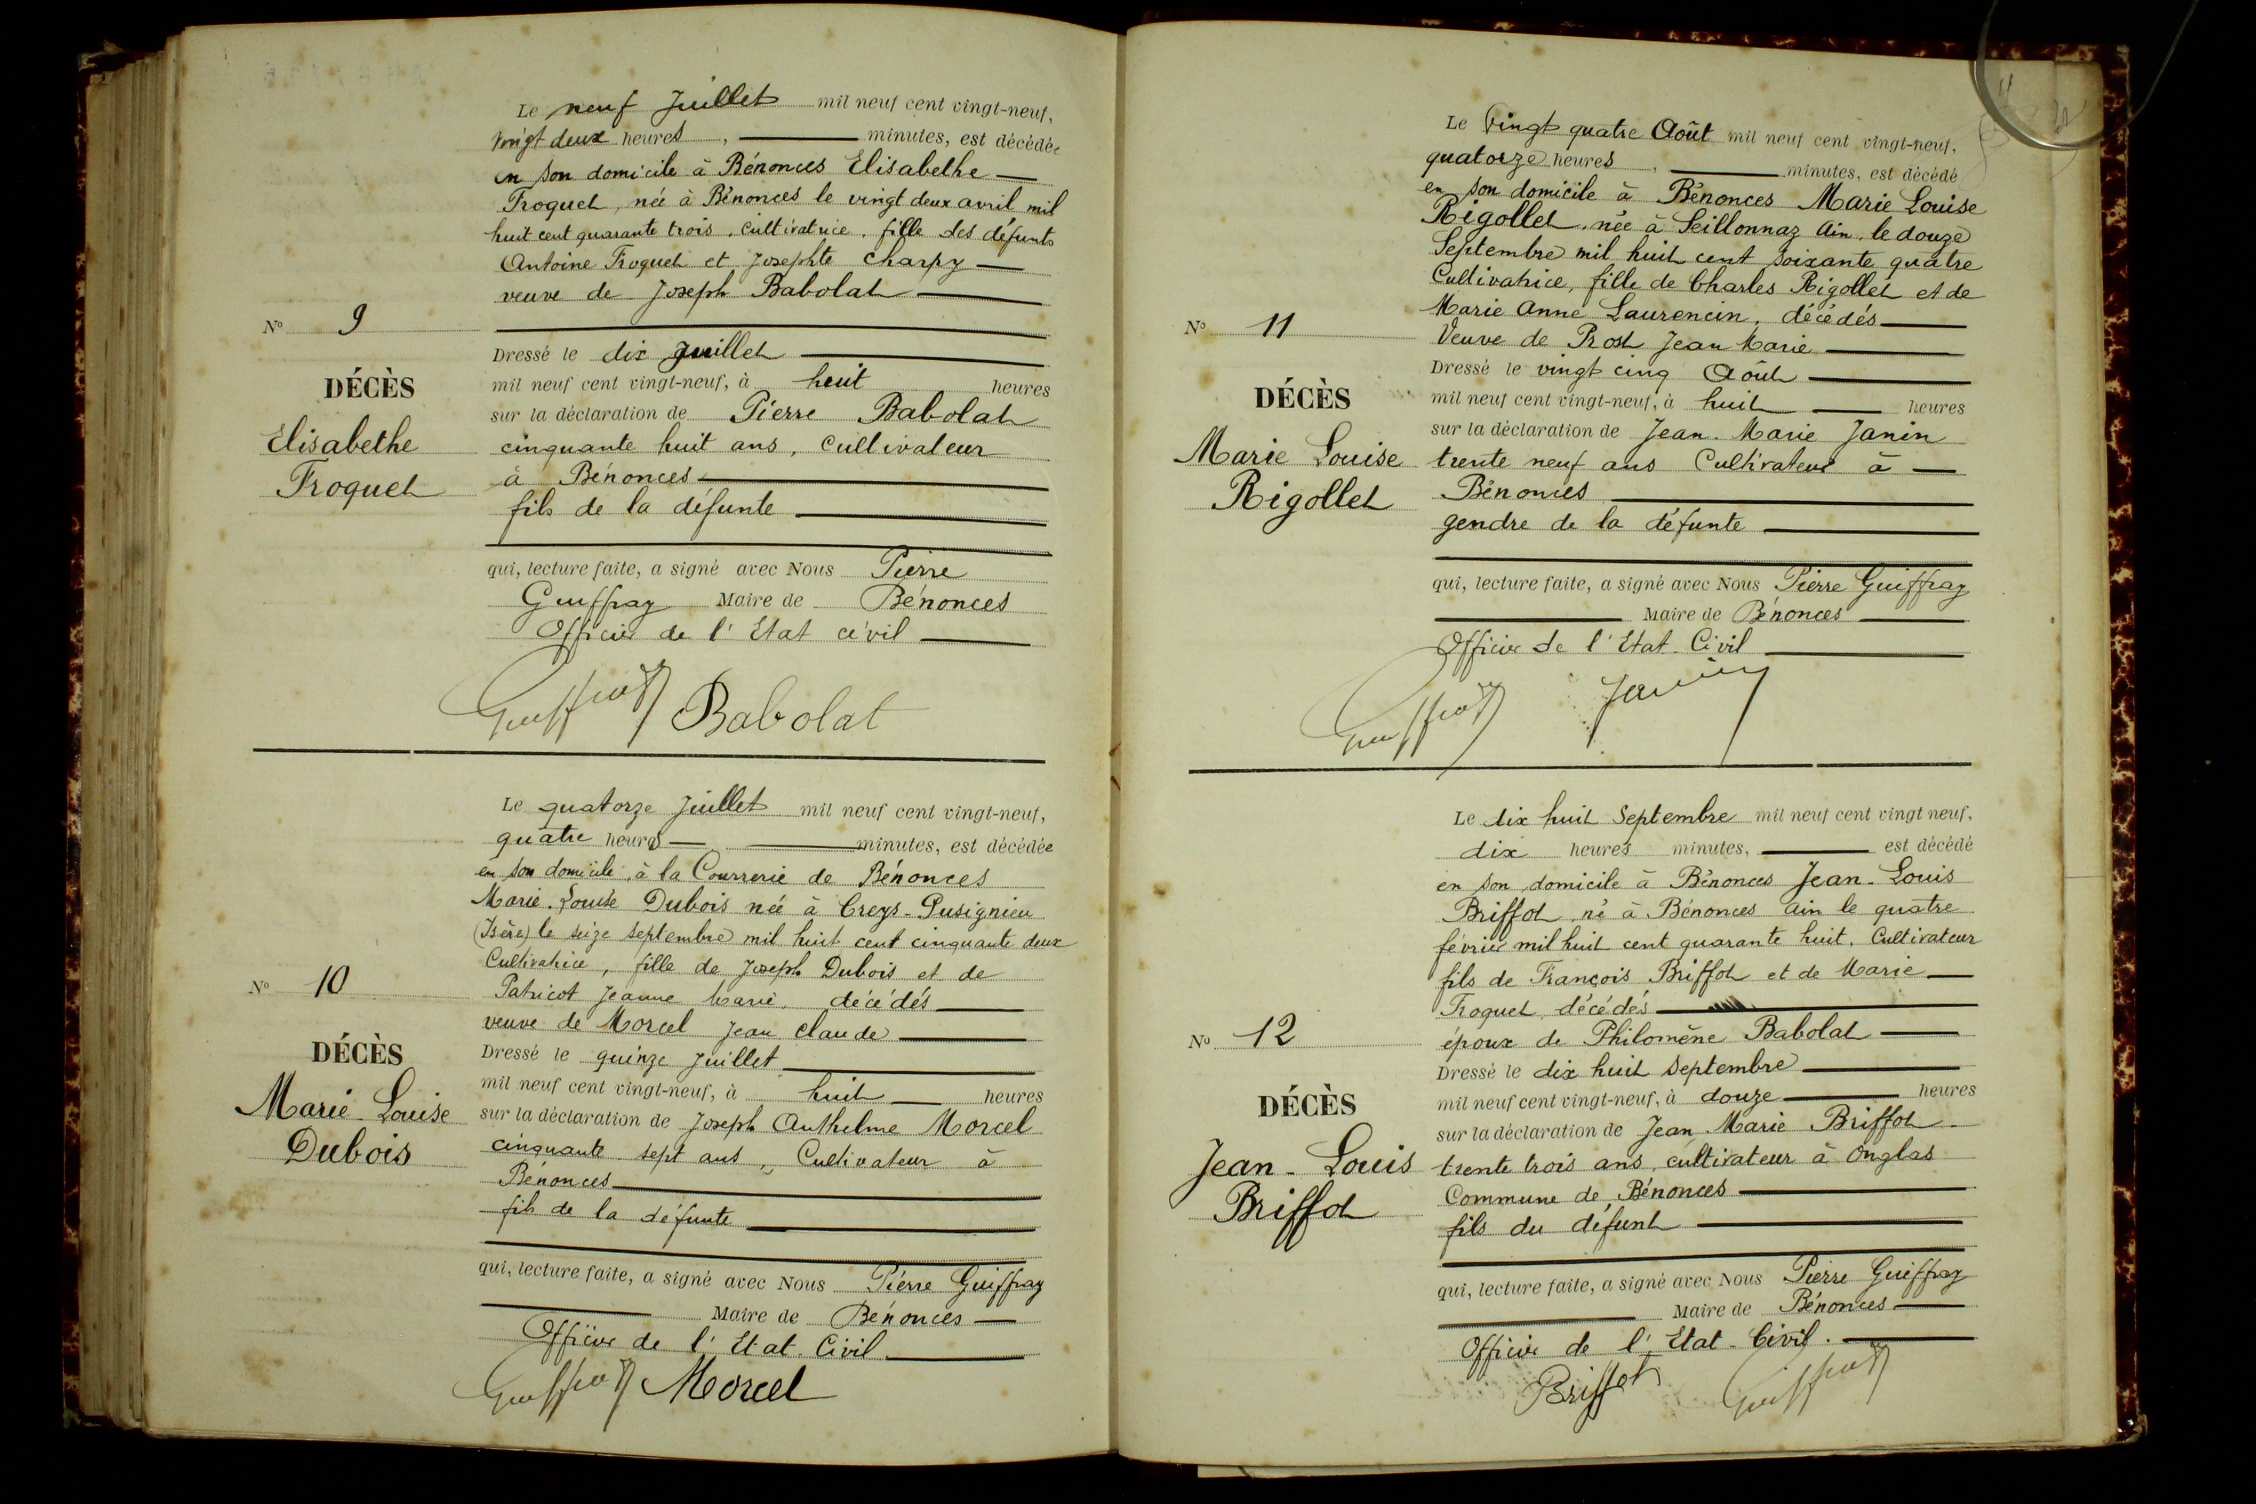 Le neuf Juillet mil neuf cent vingt-neuf,
vingt deux heures, minutes, est décédée
en son domicile à Bénonces Elisabethe
Froquet, née à Bénonces le vingt deux avril mil
huit cent quarante trois, cultivatrice, fille des défunts
Antoine Froquet et Josephte Charpy
veuve de Joseph Babolat
N° 9
Dressé le dix Juillet
DÉCÈS
mil neuf cent vingt-neuf, à huit heures
sur la déclaration de Pierre Babolat
Elisabethe
cinquante huit ans, cultivateur
Froquet
à Bénonces
fils de la défunte
qui, lecture faite, a signé avec Nous Pierre
Guiffray Maire de Bénonces
Officier de l'Etat civil
Guiffray Babolat
Le quatorze Juillet mil neuf cent vingt-neuf,
quatre heures minutes, est décédée
en son domicile, à la Courrerie de Bénonces
Marie-Louise Dubois née à Creys-Pusignieu
(Isère) le seize septembre mil huit cent cinquante deux
Cultivatrice, fille de Joseph Dubois et de
Patricot Jeanne Marie, décédés
N° 10
veuve de Morcel Jean Claude
DÉCÈS
Dressé le quinze Juillet
mil neuf cent vingt-neuf, à huit heures
Marie-Louise
sur la déclaration de Joseph Anthelme Morcel
Dubois
cinquante sept ans, Cultivateur à
Bénonces
fils de la défunte
qui, lecture faite, a signé avec Nous Pierre Guiffray
Maire de Bénonces
Officier de l'Etat Civil
Guiffray Morcel
Le Vingt quatre Août mil neuf cent vingt-neuf,
quatorze heures, minutes, est décédé
en son domicile à Bénonces Marie Louise
Rigollet, née à Seillonnaz Ain, le douze
Septembre mil huit cent soixante quatre
Cultivatrice, fille de Charles Rigollet et de
Marie Anne Laurencin, décédés
N° 11
Veuve de Prost Jean Marie
Dressé le vingt cinq Août
DÉCÈS
mil neuf cent vingt-neuf, à huit heures
sur la déclaration de Jean-Marie Janin
Marie Louise
trente neuf ans Cultivateur à
Rigollet
Bénonces
gendre de la défunte
qui, lecture faite, a signé avec Nous Pierre Guiffray
Maire de Bénonces
Officier de l'Etat-Civil
Guiffray Janin
Le dix huit Septembre mil neuf cent vingt neuf,
dix heures minutes, est décédé
en son domicile à Bénonces Jean-Louis
Briffot, né à Bénonces Ain le quatre
février mil huit cent quarante huit, Cultivateur
fils de François Briffot et de Marie
Froquet, décédés
N° 12
époux de Philomène Babolat
Dressé le dix huit Septembre
DÉCÈS
mil neuf cent vingt-neuf, à douze heures
sur la déclaration de Jean Marie Briffot
Jean-Louis
trente trois ans, cultivateur à Onglas
Briffot
Commune de Bénonces
fils du défunt
qui, lecture faite, a signé avec Nous Pierre Guiffray
Maire de Bénonces
Officier de l'Etat-Civil.
Briffot Guiffray